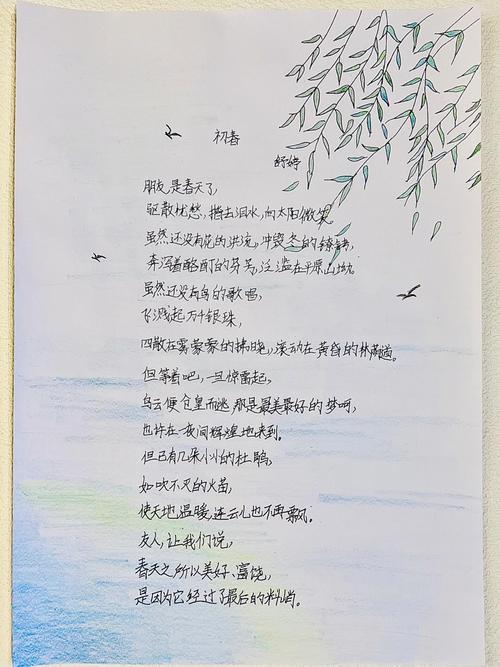 初春
舒婷
朋友,是春天了,
驱散忧愁,揩去泪水,向太阳微笑。
虽然还没有花的洪流,冲毁冬的镣铐,
奔泻着酩酊的芬芳,泛滥在平原山坳。
虽然还没有鸟的歌唱,
飞溅起万千银珠,
四散在雾蒙蒙的拂晓,滚动在黄昏的林荫道。
但等着吧,一旦惊雷起,
乌云便仓皇而逃,那是最美最好的梦呵,
也许在一夜间辉煌地来到。
但已有几朵小小的杜鹃,
如吹不灭的火苗,
使天地温暖,连云儿也不再飘。
友人,让我们说,
春天之所以美好、富饶,
是因为它经过了最后的料峭。